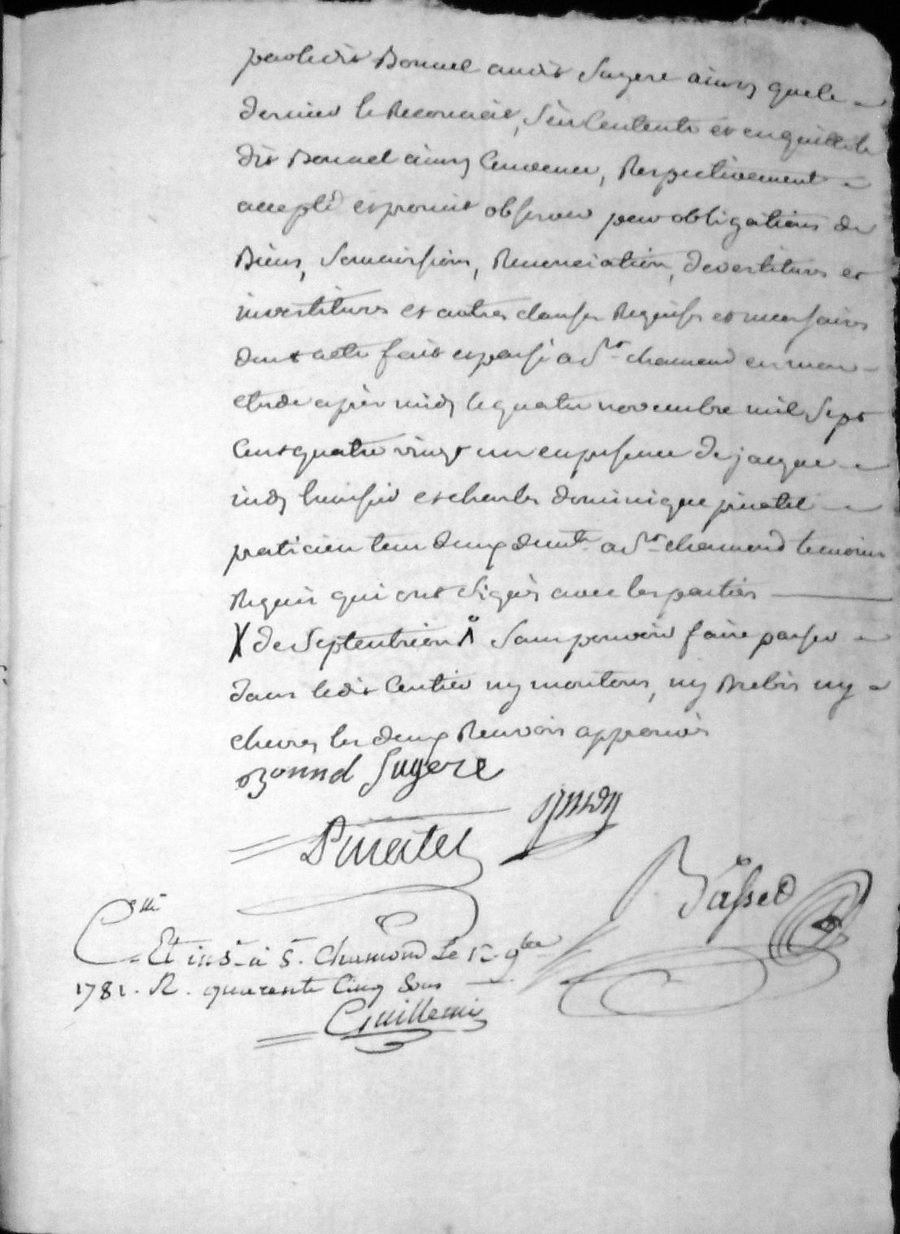 parledit Bonnel audit Sugere ainsy quele
dernier le Reconnait, s'en Contente et en quitte le
dit Bonnel ainsy Convenu, Respectivement
accepté et promit observer par obligations de
Biens, Soumissions, Renonciation, devestitures et
investitures et autres clauses Requises et necessaires
dont acte fait et passé a St chamond en mon
etude apres midy le quatre novembre mil Sept
Cent quatre vingt un en presence de jacque
huissier et charles dominique pinatel
praticien tous deux demts a St chamond temoins
Requis qui ont signés avec les parties
X de Septentrion Sans pouvoir faire passer
dans ledit Sentier ny moutons, ny Brebis ny
chevres les deux Renvois approuvés
Bonnel Sugere
Pinatel
Basset
Cllé
Et insé à St Chamond Le 9bre
1781. R. quarente Cinq Sous
Guillemin